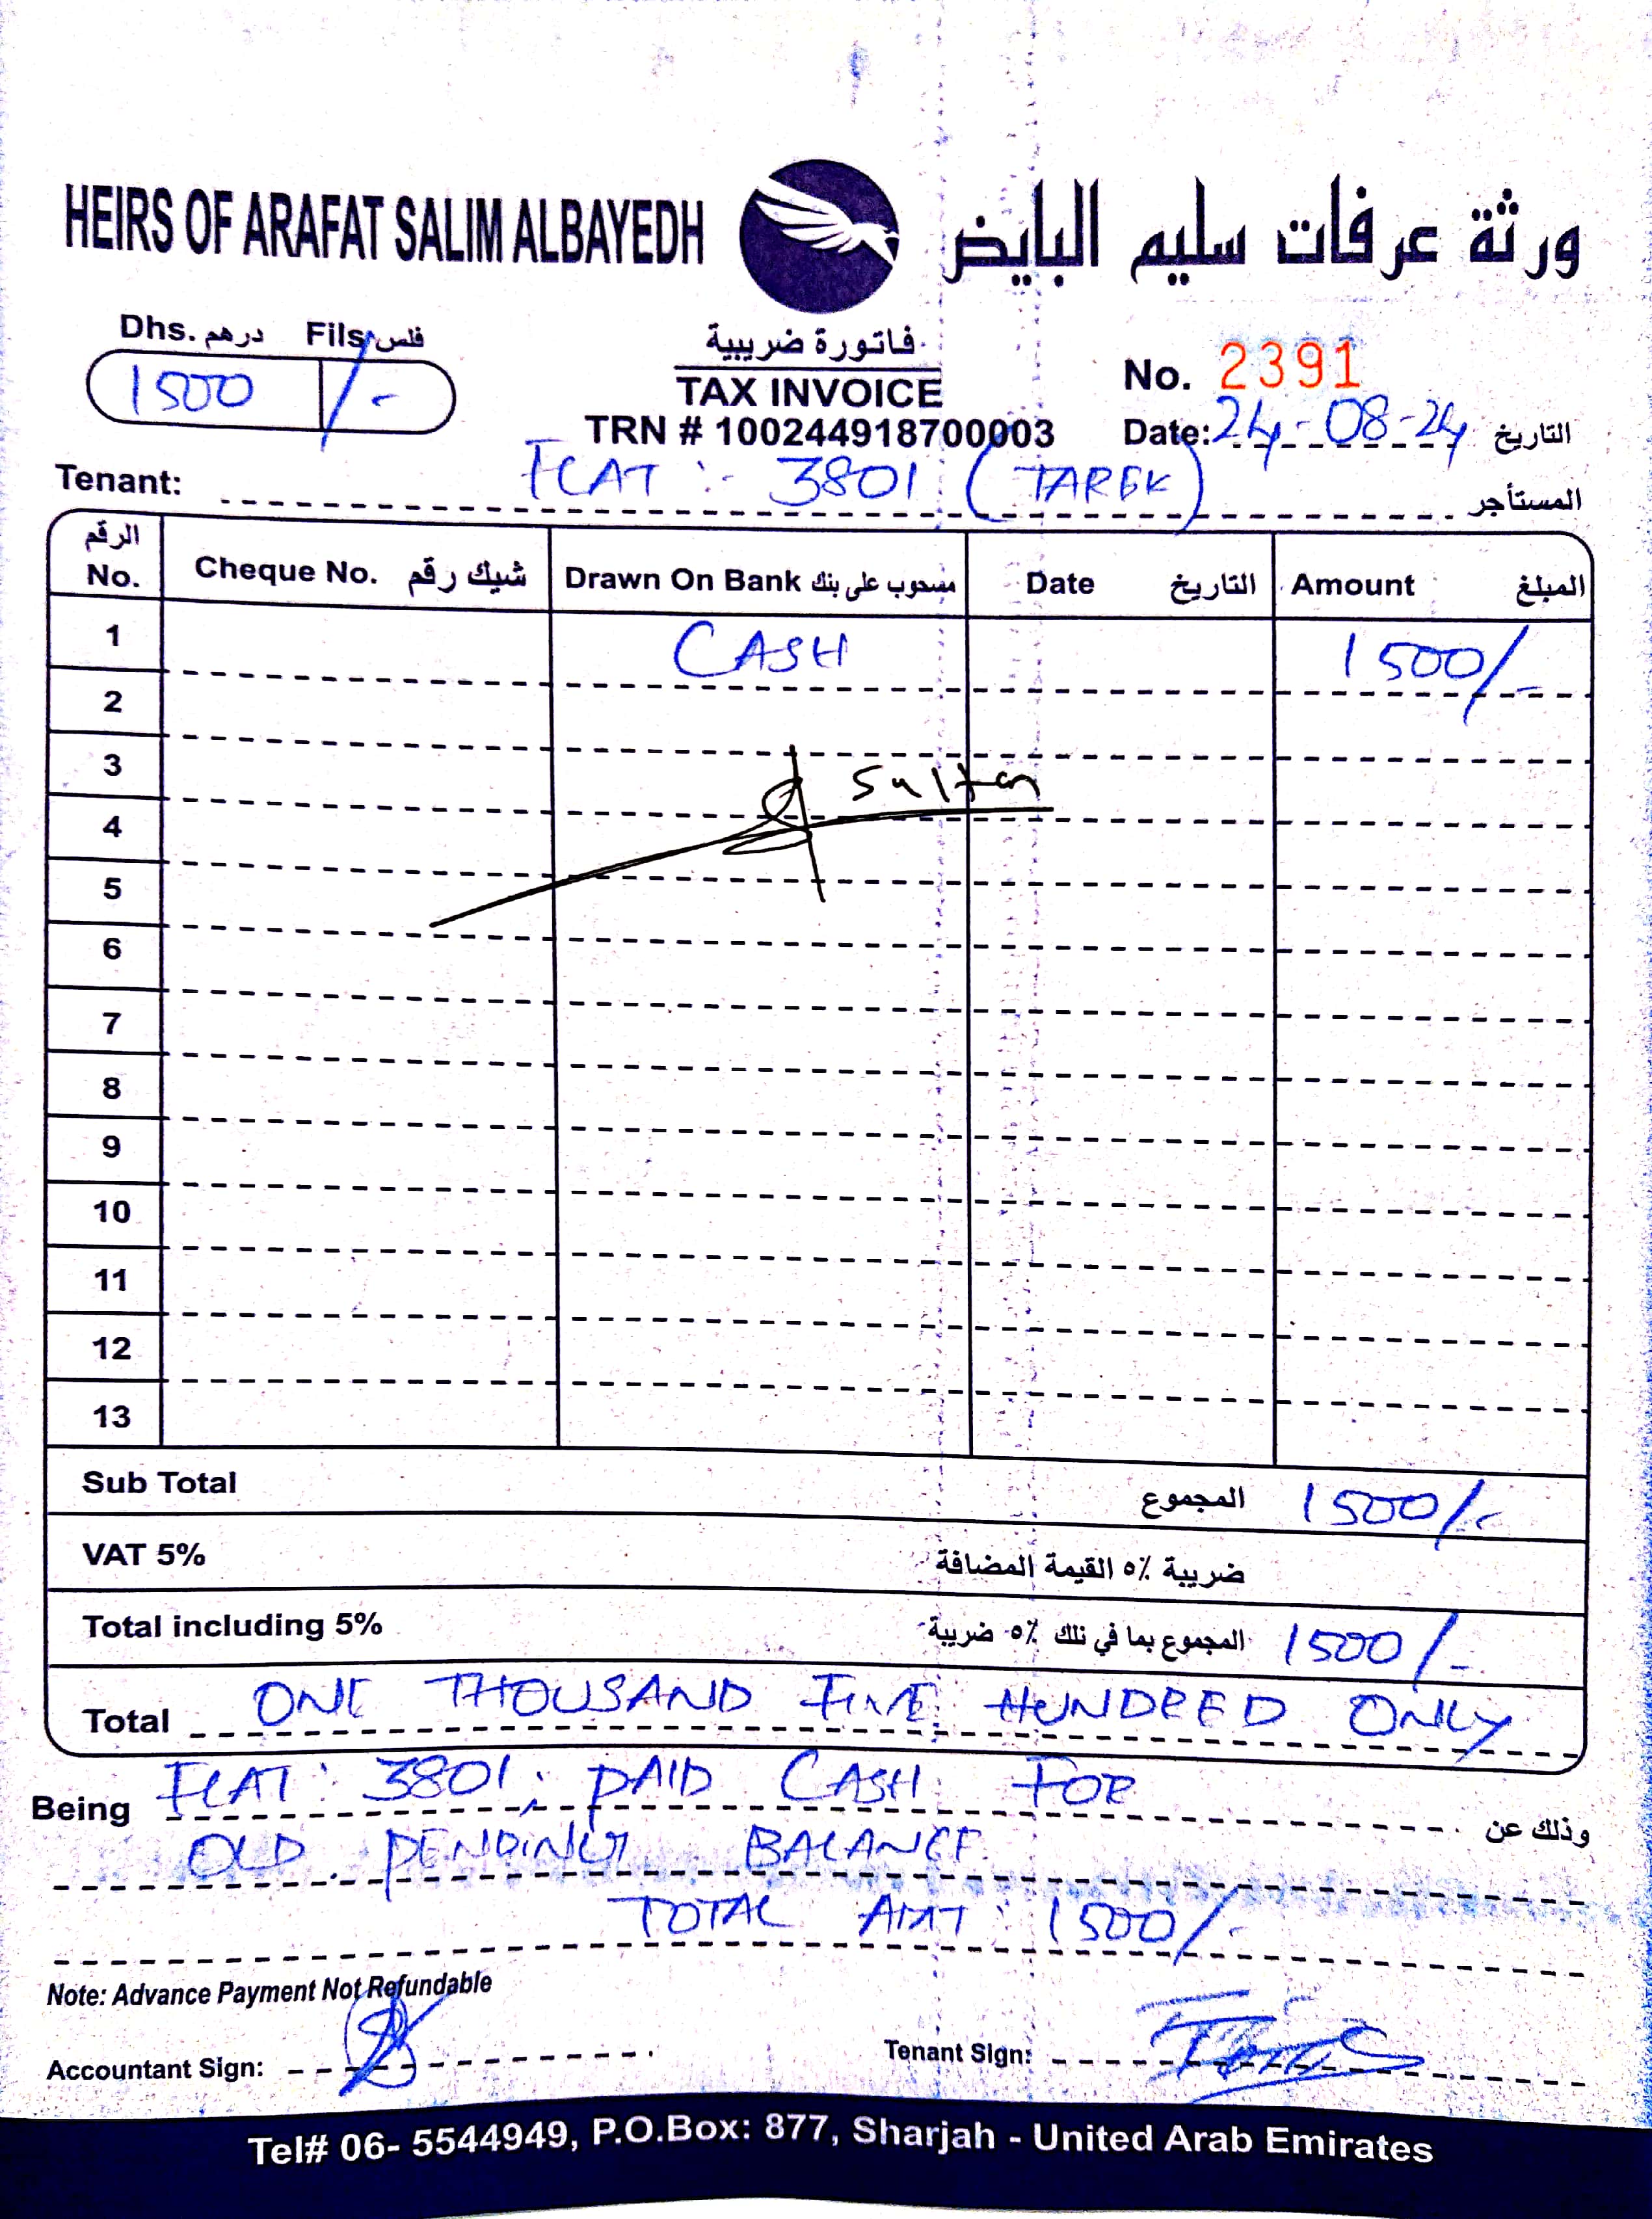 HEIRS OF ARAFAT SALIM ALBAYEDH ورثة عرفات سليم البايض
Dhs. درهم Fils فلس
1500 /-
فاتورة ضريبية
TAX INVOICE
TRN # 100244918700003
No. 2391
Date: 24-08-24 التاريخ
Tenant: FLAT :- 3801 (TAREK) المستأجر
الرقم No. Cheque No. شيك رقم Drawn On Bank مسحوب على بنك Date التاريخ Amount المبلغ
1 CASH 1500/-
2
3 Sultan
4
5
6
7
8
9
10
11
12
13
Sub Total المجموع 1500/-
VAT 5% ضريبة ٥٪ القيمة المضافة
Total including 5% المجموع بما في ذلك ٥٪ ضريبة 1500/-
Total ONE THOUSAND FIVE HUNDRED ONLY
Being FLAT: 3801; PAID CASH FOR وذلك عن
OLD PENDING BALANCE.
TOTAL AMT: 1500/-
Note: Advance Payment Not Refundable
Accountant Sign: Tenant Sign:
Tel# 06- 5544949, P.O.Box: 877, Sharjah - United Arab Emirates